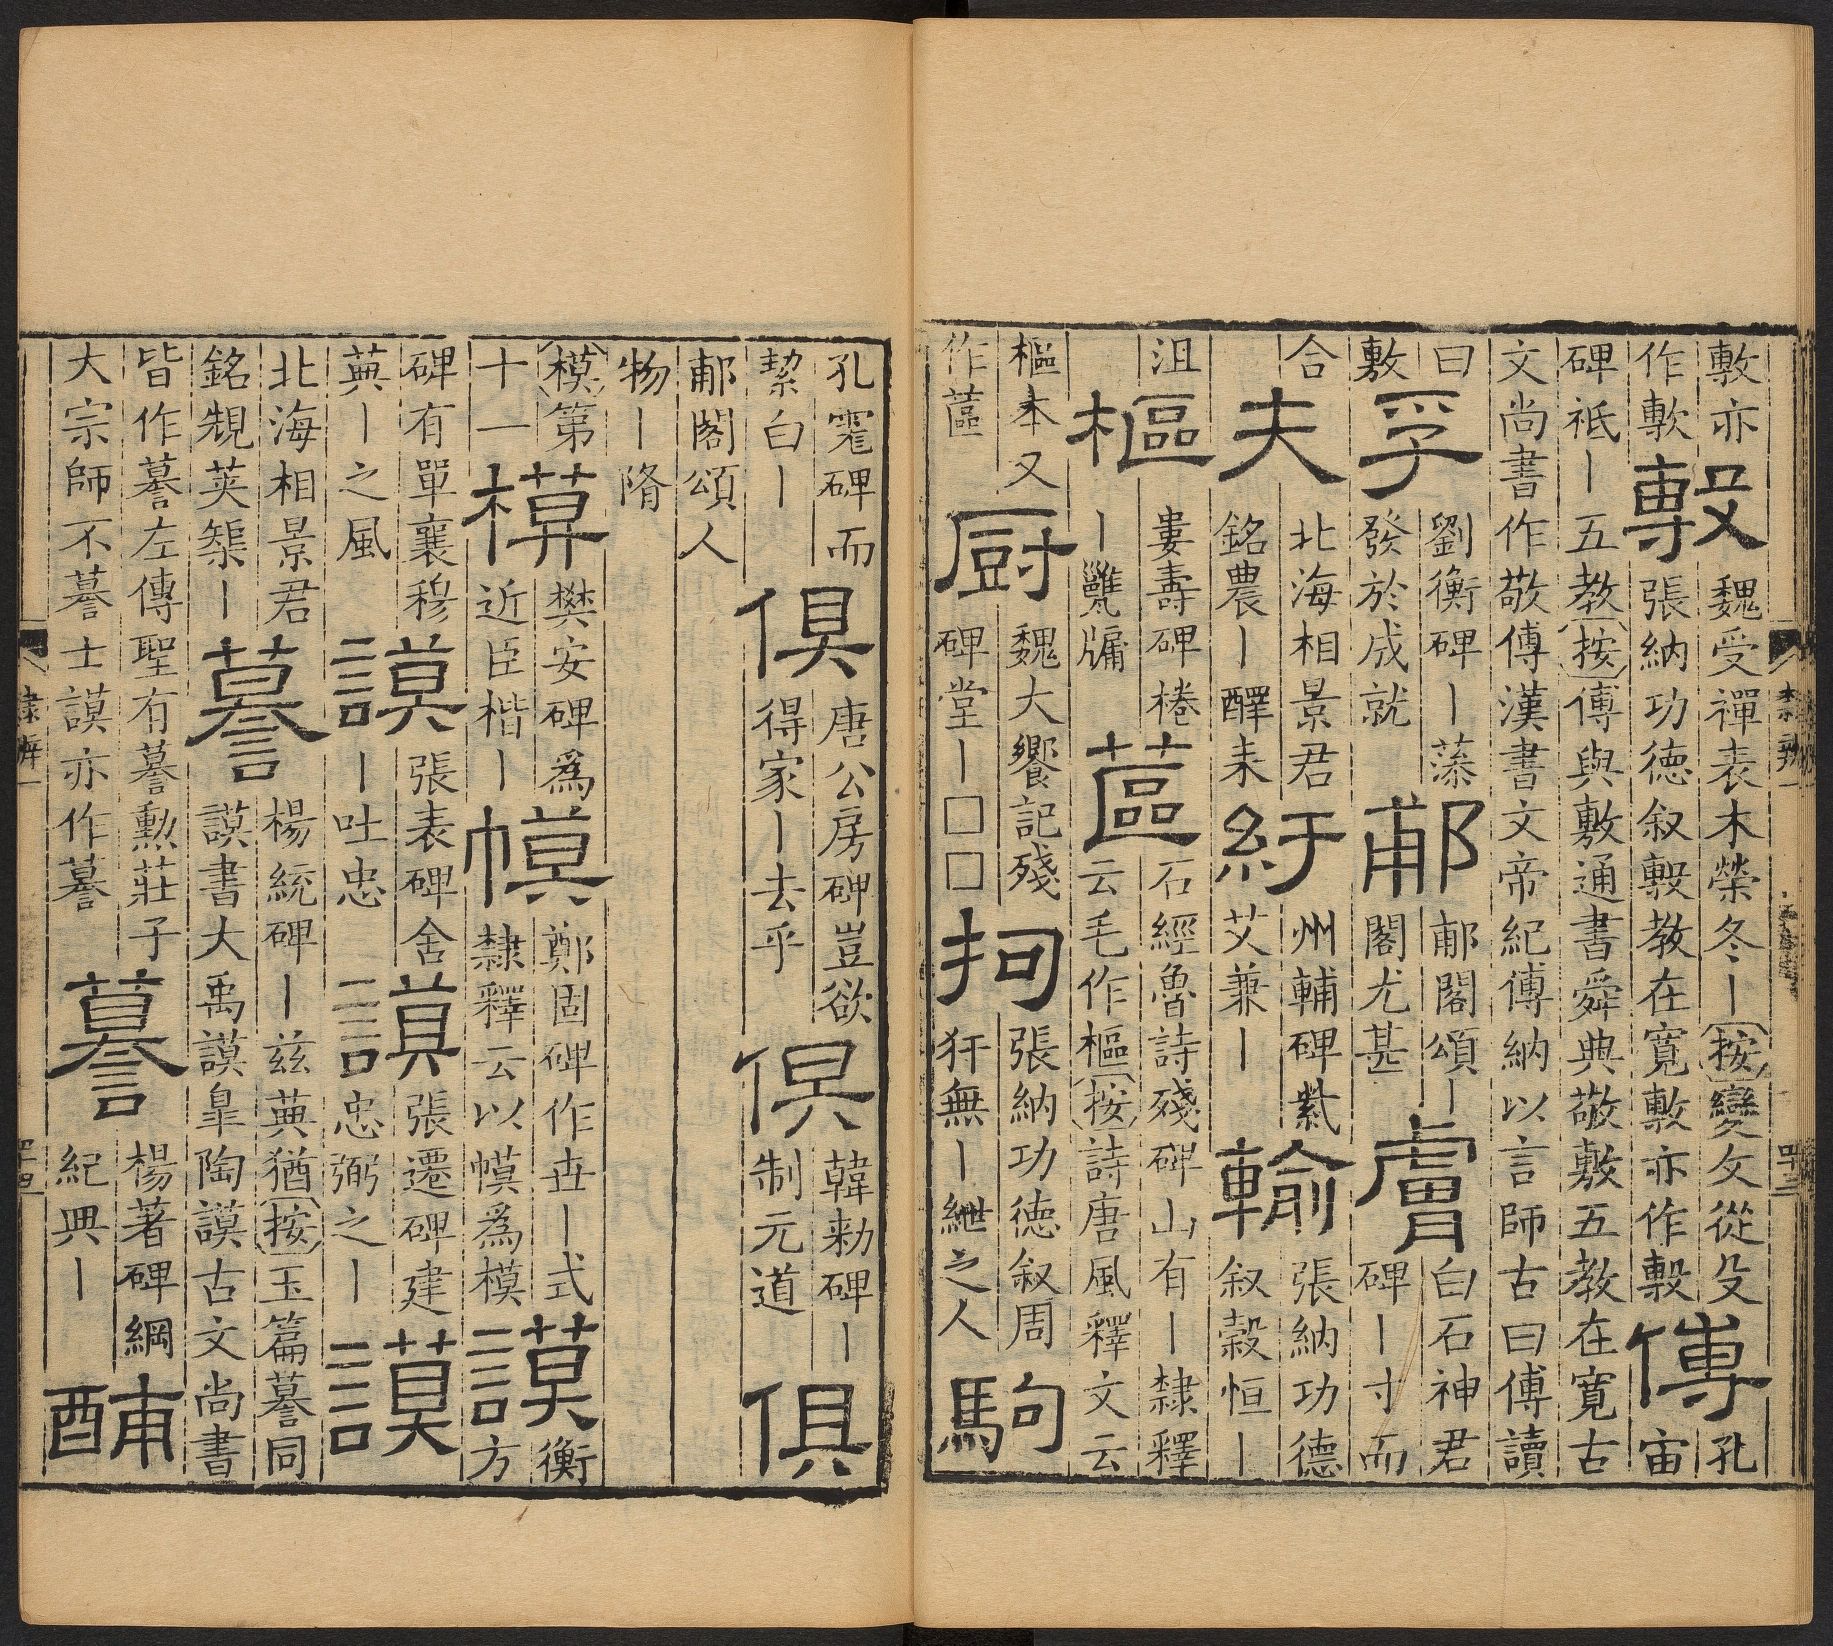 敷亦作敷敷魏受禪表木榮冬丨按變攵從殳張納功德叙敷教在寬敷亦作敷傅孔宙
碑祗丨五教按傅與敷通書舜典敬敷五教在寬古
文尚書作敬傅漢書文帝紀傅納以言師古曰傅讀
曰敷孚劉衡碑丨發於成就郙郙閣頌丨閣尤甚膚白石神君碑丨寸而
合夫北海相景君銘農丨醳耒紆州輔碑紫艾兼丨輸張納功德叙穀恒丨
沮樞婁壽碑棬丨甕牖蓲石經魯詩殘碑山有丨隸釋云毛作樞按詩唐風釋文云
樞本又作蓲厨魏大饗記殘碑堂丨□□拘張納功德叙周犴無丨紲之人駒
隸辨一
四十三
孔碑而絜白丨俱唐公房碑豈欲得家丨去乎俱韓勑碑丨制元道俱
郙閣頌人物丨隋
模第十一模樊安碑爲近臣楷丨幙鄭固碑作世丨式隸釋云以幙爲模謨衡方
碑有單襄穆英丨之風謨張表碑舍丨吐忠謨張遷碑建忠弼之丨謨
北海相景君銘䂓英槼丨謩楊統碑丨兹英猶按玉篇謩同謨書大禹謨皐陶謨古文尚書
皆作謩左傳聖有謩勲莊子大宗師不謩士謨亦作謩謩楊著碑綱紀典丨酺
隸辨一
四十四